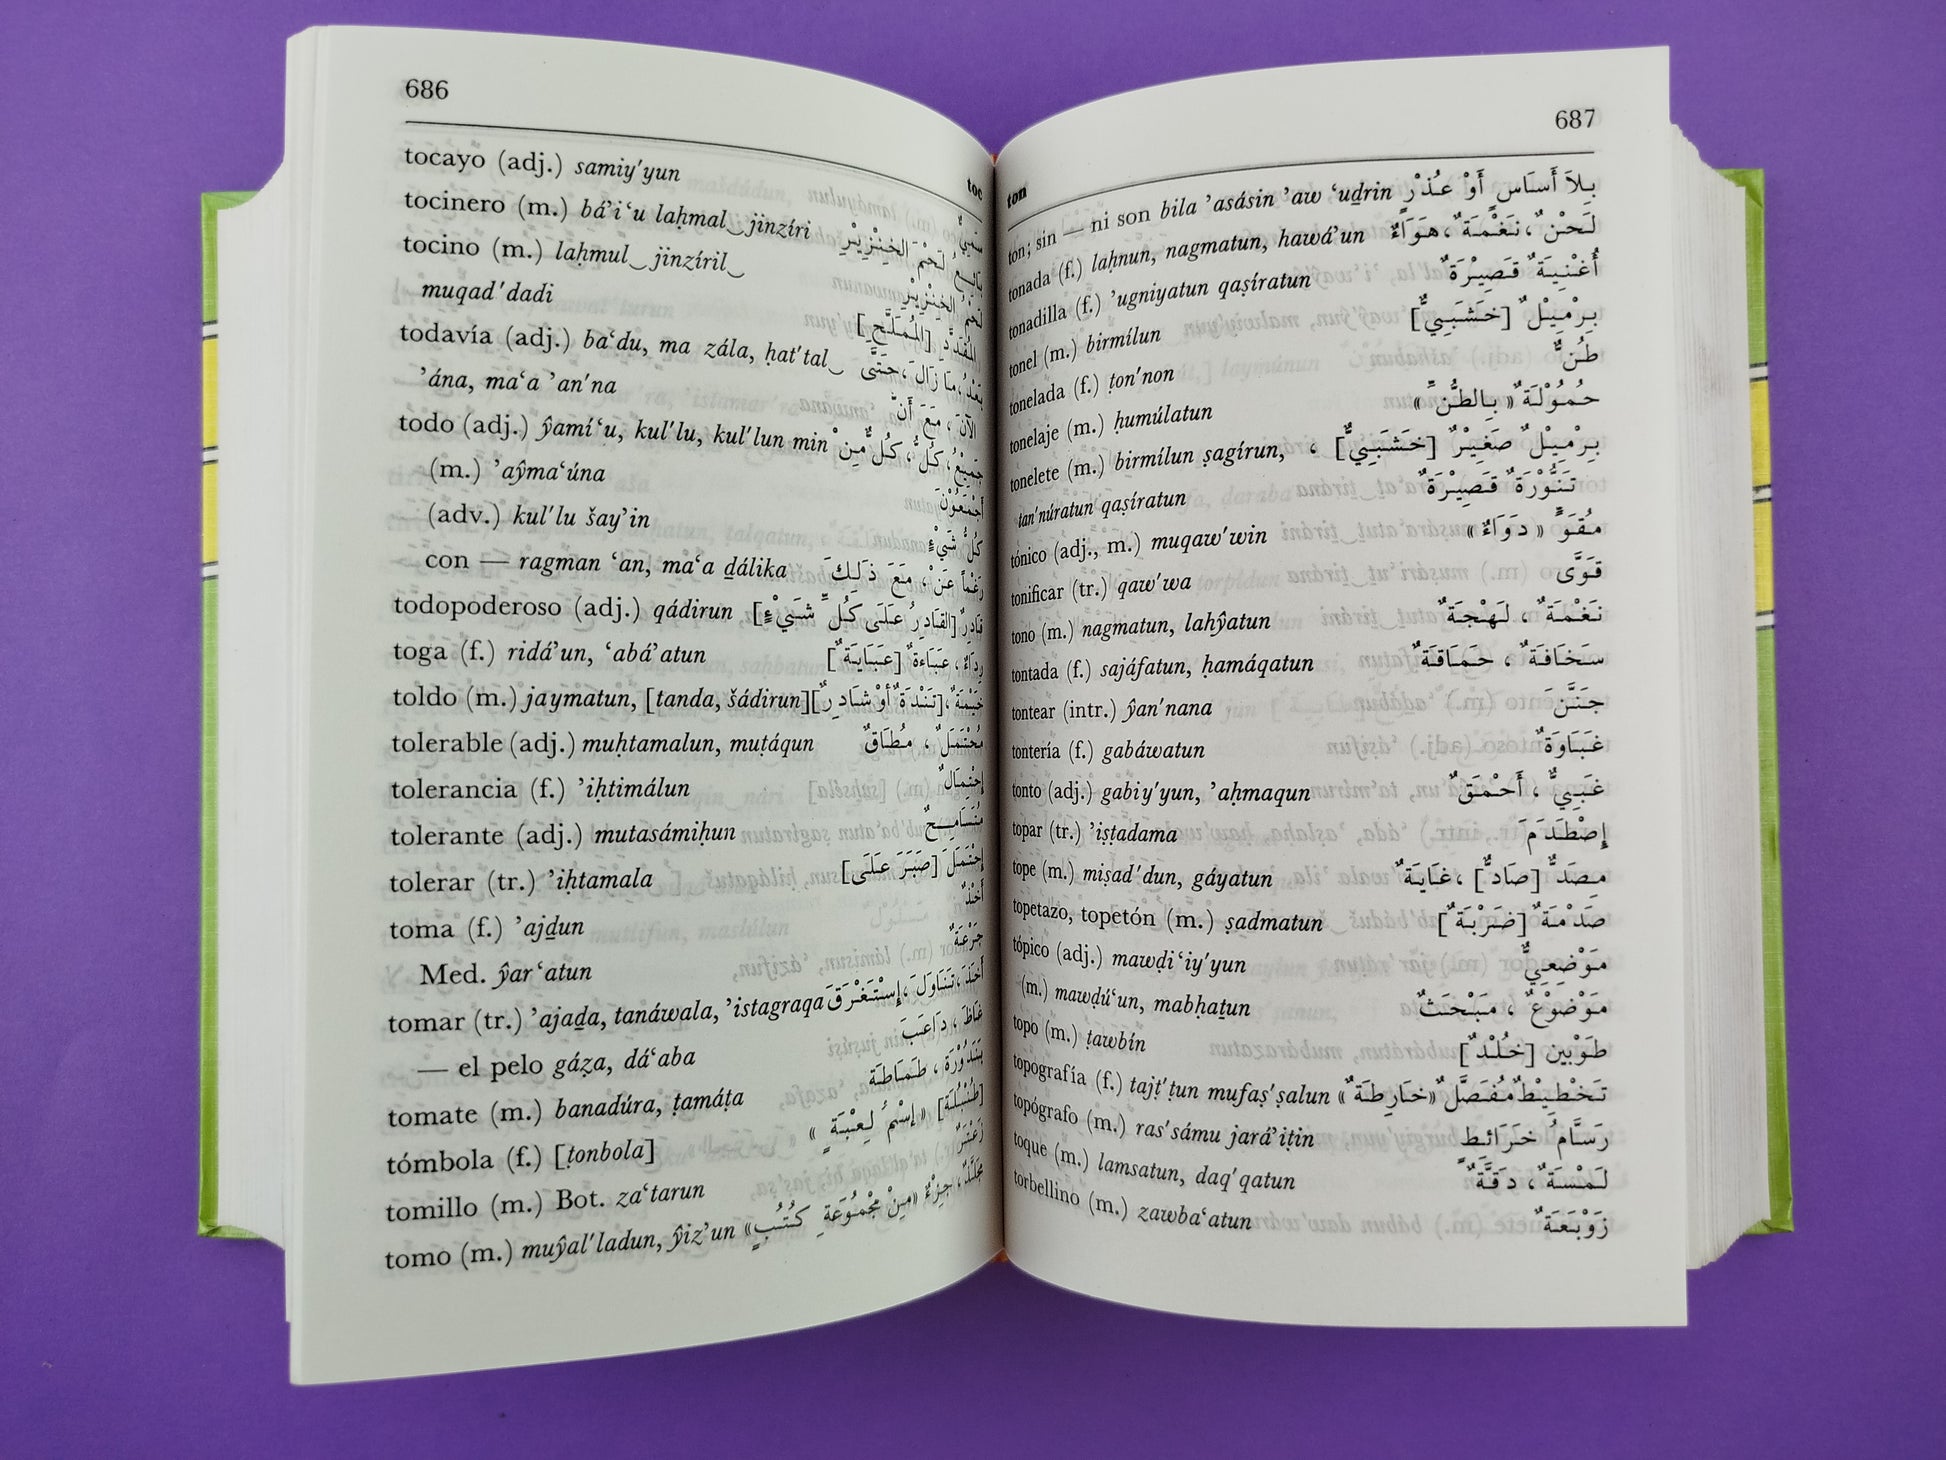 686
toc
tocayo (adj.) samiy'yun سَمِيٌّ
tocinero (m.) bá’i‘u laḥmal‿jinzíri بَائِعُ لَحْمَ الخِنْزِيْرِ
tocino (m.) laḥmul‿jinzíril‿ لَحْمُ الخِنْزِيْرِ
muqad'dadi المُقَدَّدِ [المُمَلَّحِ]
todavía (adj.) ba‘du, ma zála, ḥat'tal‿ بَعْدُ، مَا زَالَ، حَتَّى
’ána, ma‘a ’an'na الآنَ، مَعَ أَنَّ
todo (adj.) ŷamí‘u, kul'lu, kul'lun min جَمِيْعُ، كُلُّ، كُلٌّ مِنْ
(m.) ’aŷma‘úna أَجْمَعُوْنَ
(adv.) kul'lu šay’in كُلُّ شَيْءٍ
con — ragman ‘an, ma‘a ḏálika رَغْماً عَنْ، مَعَ ذَلِكَ
todopoderoso (adj.) qádirun قَادِرٌ [القَادِرُ عَلَى كُلِّ شَيْءٍ]
toga (f.) ridá’un, ‘abá’atun رِدَاءٌ، عَبَاءةٌ [عَبَايَةٌ]
toldo (m.) jaymatun, [tanda, šádirun] خَيْمَةٌ، [تَنْدَةٌ أَوْ شَادِرٌ]
tolerable (adj.) muḥtamalun, muṭáqun مُحْتَمَلٌ، مُطَاقٌ
tolerancia (f.) ’iḥtimálun إِحْتِمَالٌ
tolerante (adj.) mutasámiḥun مُتَسَامِحٌ
tolerar (tr.) ’iḥtamala إِحْتَمَلَ [صَبَرَ عَلَى]
toma (f.) ’ajḏun أَخْذٌ
Med. ŷar‘atun جَرْعَةٌ
tomar (tr.) ’ajaḏa, tanáwala, ’istagraqa أَخَذَ، تَنَاوَلَ، إِسْتَغْرَقَ
— el pelo gáẓa, dá‘aba غَاظَ، دَاعَبَ
tomate (m.) banadúra, ṭamáṭa بَنَدُوْرَة، طَمَاطَة
tómbola (f.) [ṭonbola] [طُنْبُلَة] «إِسْمُ لِعْبَةٍ»
tomillo (m.) Bot. za‘tarun زَعْتَرٌ
tomo (m.) muŷal'ladun, ŷiz'un مُجَلَّدٌ، جِزْءٌ «مِنْ مَجْمُوْعَةِ كُتُبٍ»
687
ton
ton; sin — ni son bila ’asásin ’aw ‘uḏrin بِلاَ أَسَاسٍ أَوْ عُذْرٍ
tonada (f.) laḥnun, nagmatun, hawá’un لَحْنٌ، نَغْمَةٌ، هَوَاءٌ
tonadilla (f.) ’ugniyatun qaṣíratun أُغْنِيَةٌ قَصِيْرَةٌ
tonel (m.) birmílun بِرْمِيْلٌ [خَشَبِيٌّ]
tonelada (f.) ṭon'non طُنٌّ
tonelaje (m.) ḥumúlatun حُمُوْلَةٌ «بِالطُّنِّ»
tonelete (m.) birmílun ṣagírun, بِرْمِيْلٌ صَغِيْرٌ [خَشَبِيٌّ] ،
tan'núratun qaṣíratun تَنُّوْرَةٌ قَصِيْرَةٌ
tónico (adj., m.) muqaw'win مُقَوٍّ «دَوَاءٌ»
tonificar (tr.) qaw'wa قَوَّى
tono (m.) nagmatun, lahŷatun نَغْمَةٌ، لَهْجَةٌ
tontada (f.) sajáfatun, ḥamáqatun سَخَافَةٌ، حَمَاقَةٌ
tontear (intr.) ŷan'nana جَنَّنَ
tontería (f.) gabáwatun غَبَاوَةٌ
tonto (adj.) gabiy'yun, ’aḥmaqun غَبِيٌّ، أَحْمَقٌ
topar (tr.) ’iṣṭadama إِصْطَدَمَ
tope (m.) miṣad'dun, gáyatun مِصَدٌّ [صَادٌّ]، غَايَةٌ
topetazo, topetón (m.) ṣadmatun صَدْمَةٌ [ضَرْبَةٌ]
tópico (adj.) mawḍi‘iy'yun مَوْضِعِيٌّ
(m.) mawḍú‘un, mabḥaṯun مَوْضُوْعٌ، مَبْحَثٌ
topo (m.) ṭawbín طَوْبِين [خُلْدٌ]
topografía (f.) tajṭ'ṭun mufaṣ'ṣalun تَخْطِيْطٌ مُفَصَّلٌ «خَارِطَةٌ»
topógrafo (m.) ras'sámu jará’iṭin رَسَّامُ خَرَائِطٍ
toque (m.) lamsatun, daq'qatun لَمْسَةٌ، دَقَّةٌ
torbellino (m.) zawba‘atun زَوْبَعَةٌ